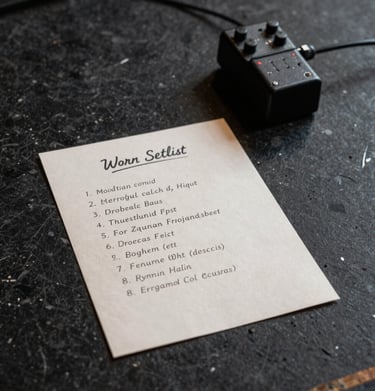 Worn Setlist
1. Moodtian comid
2. Merroful calch d, Hiqut
3. Drobealc Baus
4. Thuestlunid Fpst
5. For Zaunan Frojandsbeet
6. Droecas Feict
9. Boghem (ett
7. Fenurne (Dht (desccis)
8. Rynnin Halin
8. Errgamol Col